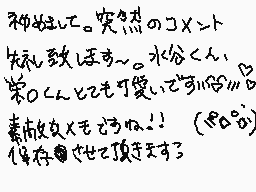 初めまして。突然のコメント
失礼致します〜。水谷くん、
栄口くんとても可愛いです!!♡!!♡♡
素敵なメモですね!!
保存させて頂きますろ